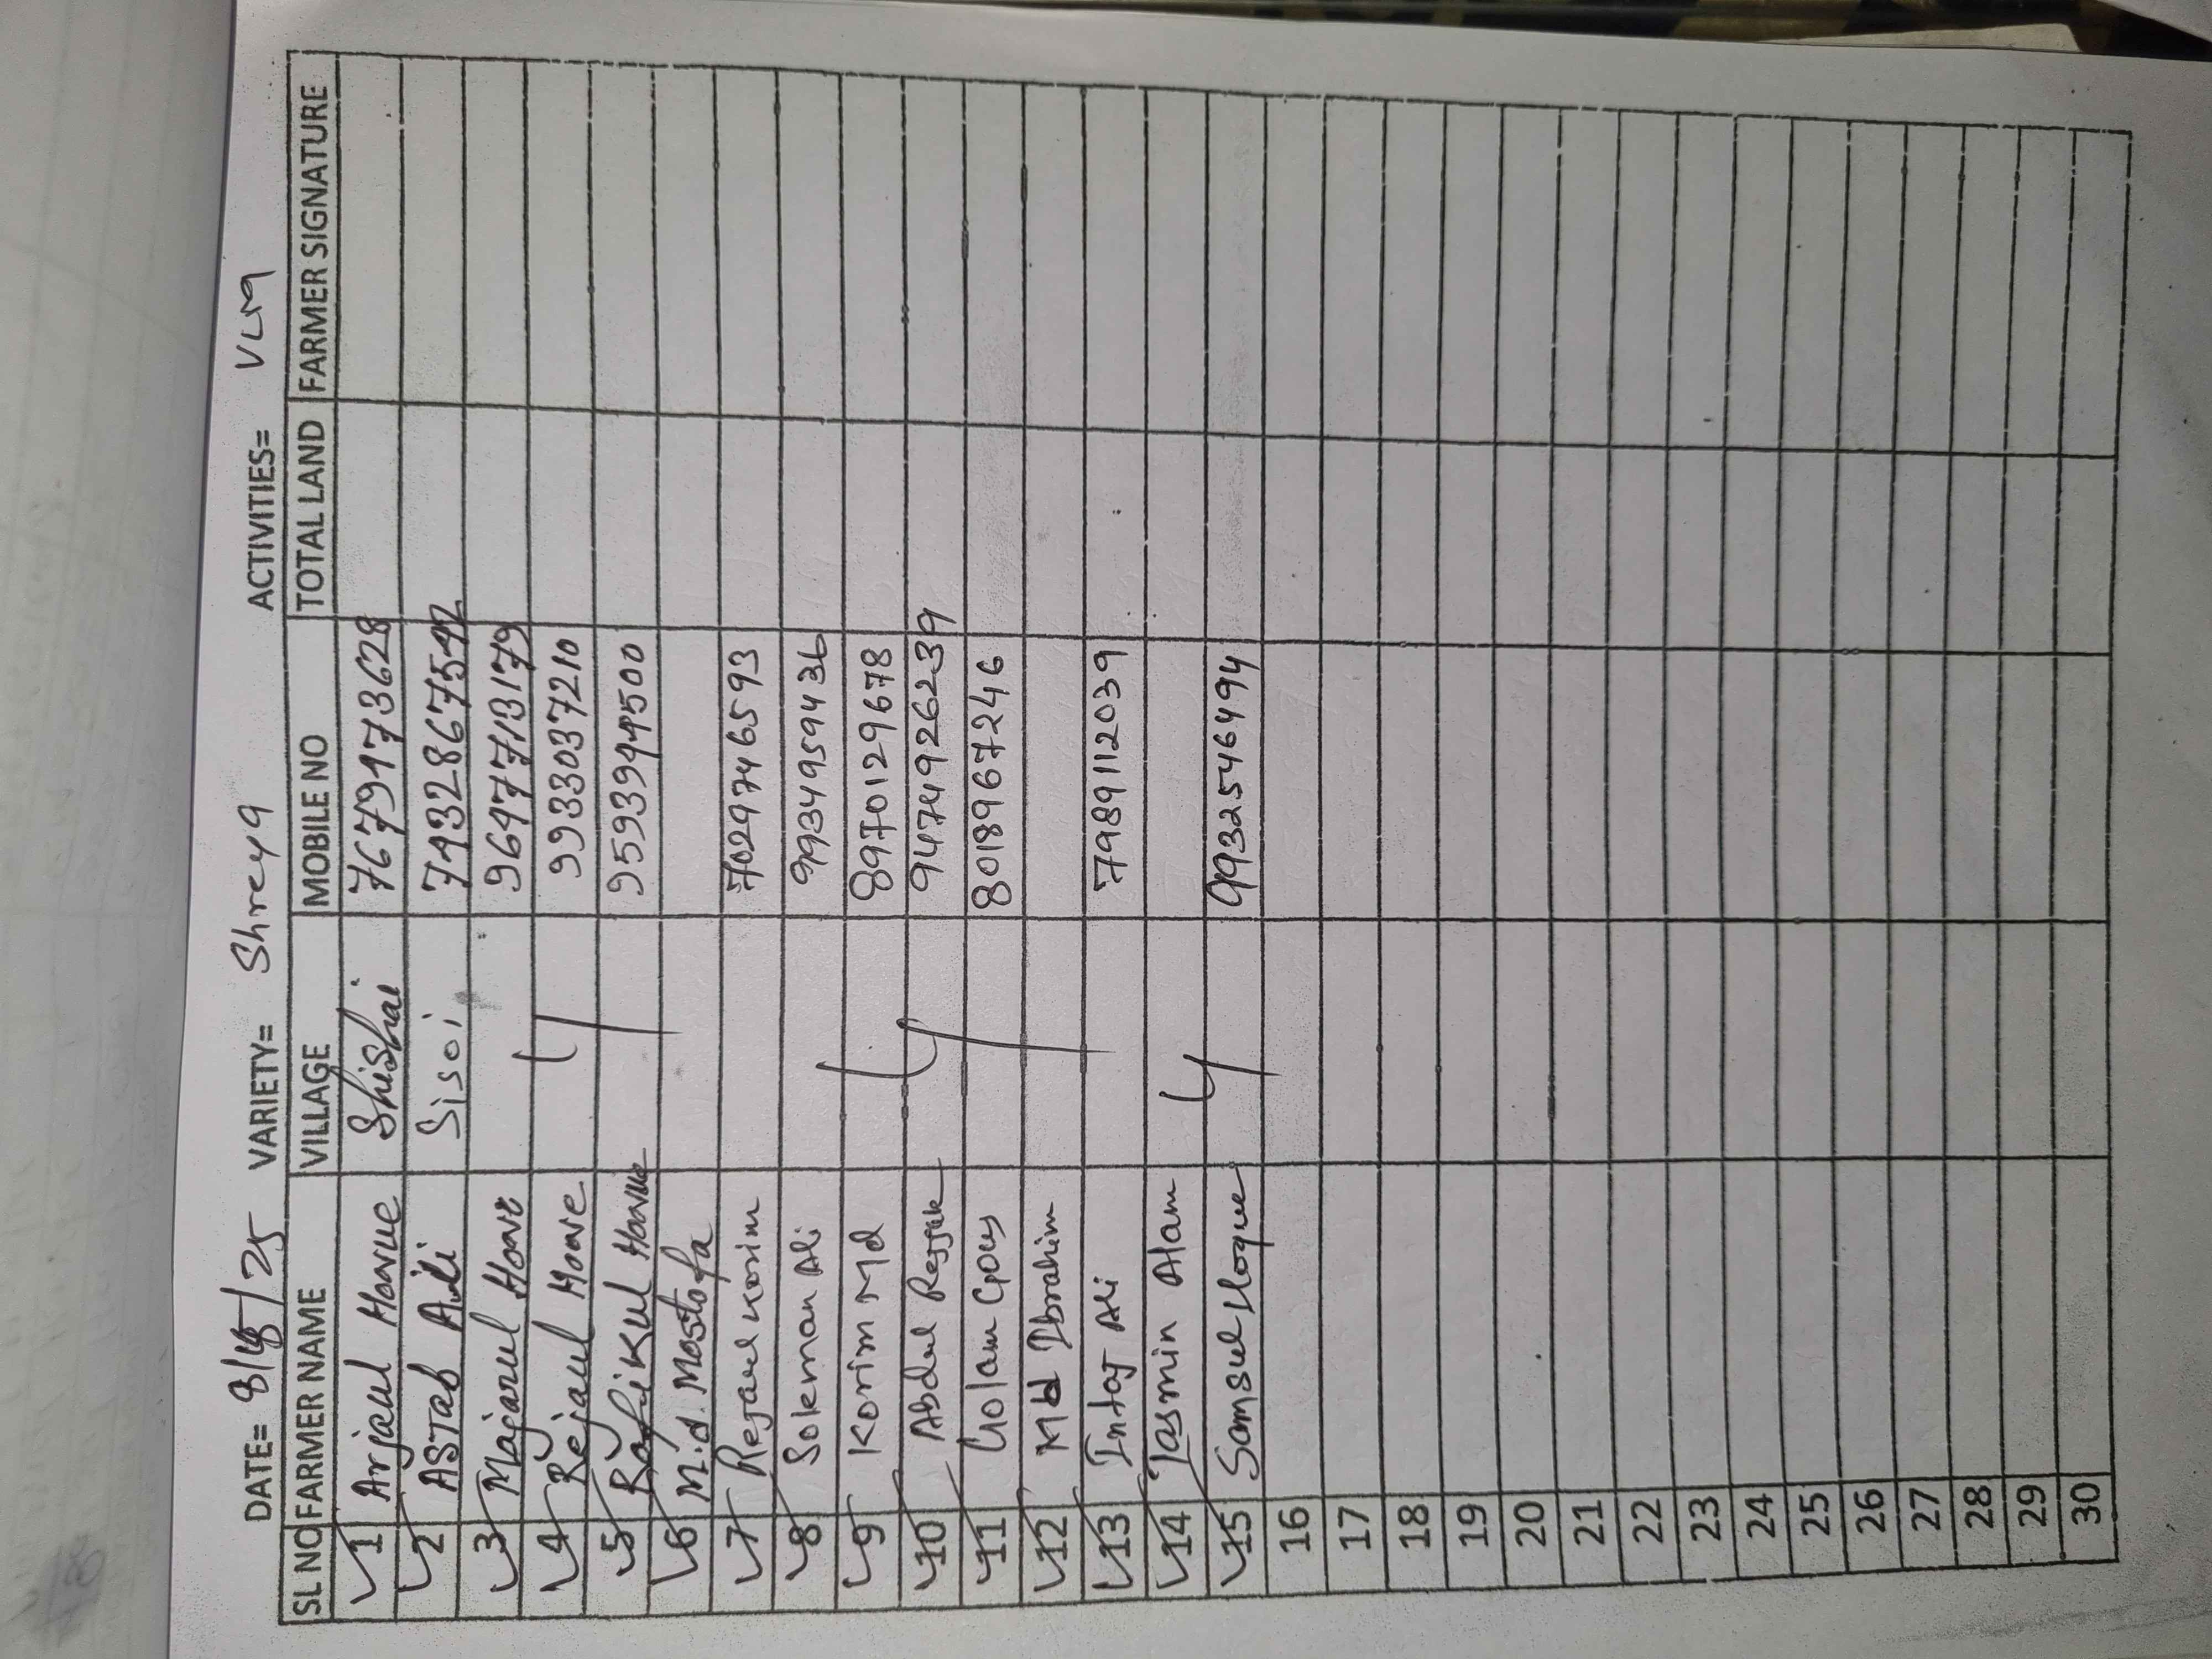 DATE= 8/8/25 VARIETY= Shreya ACTIVITIES= VLM
SL NO FARMER NAME VILLAGE MOBILE NO TOTAL LAND FARMER SIGNATURE
1 Arjaul Hoaue Shishai 7679173628
2 ASTab Ali Sisoi 7432867542
3 Majarul Hoave 9647713179
4 Rejaul Hoave 9933037210
5 Rafikul Hoaue
6 M.d. Mostofa
7 Rejaul Korim 7029746593
8 Soleman Ali 9934959436
9 Korim Md 8970129678
10 Abdul Rejjak 9474926239
11 Golam Gous 8018967246
12 Md Ibrahim
13 Intaj Ali 7989112039
14 Tasmin Alam
15 Samsul Hoque 9932546494
16
17
18
19
20
21
22
23
24
25
26
27
28
29
30